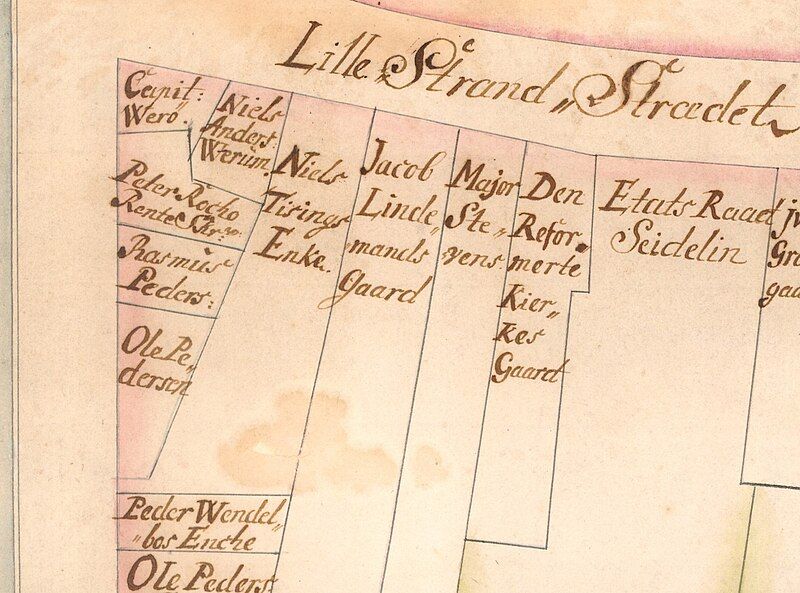 Lille Strand„ Strædet
Capit:
Werö.
Niels
Anders
Werüm.
Niels
Tisings
Enke.
Jacob
Linde„
mands
Gaard
Major
Ste„
vens
Den
Refor„
merte
Kier„
kes
Gaard
Etats Raad
Seidelin
Gaa
Peter Rocho
Rente
Rasmus
Peders:
Ole Pe„
dersen
Peder Wendel„
„bos Enche
Ole Peders: